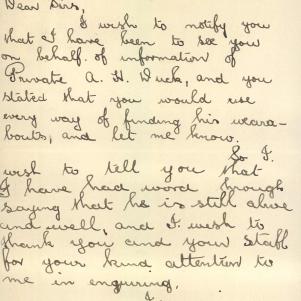 Dear Sirs,
I wish to notify you
that I have been to see you
on behalf. of information of
Private A. H. Duck, and you
stated that you would use
every way of funding his weara-
bouts, and let me know.
So I.
wish to tell you that
I have had word through
saying that he is still alive
and well, and I. wish to
thank you and your staff
for your kind attention to
me in enquring,
I.